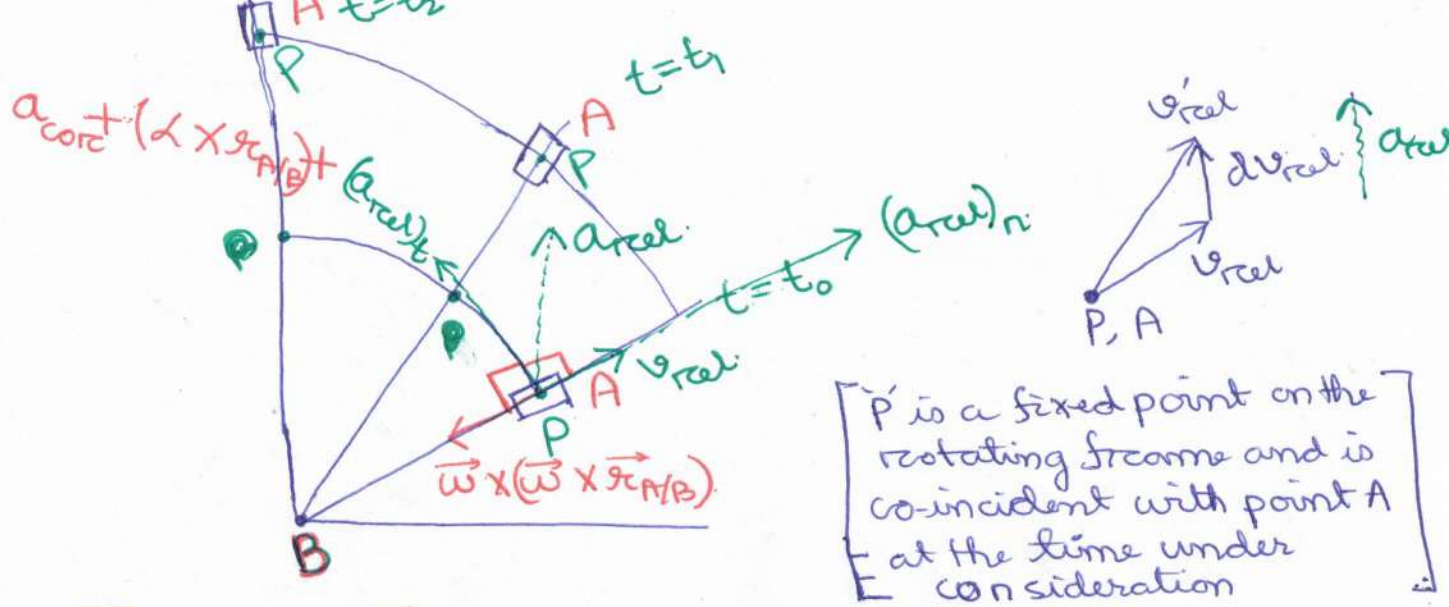 A t=t₂
P
t=t₁
A
P
a_cor + (α × r_A/B) + (a_rel)_t
a_rel.
(a_rel)_n
t=t₀
v_rel.
A
P
P
P
ω⃗ × (ω⃗ × r⃗_A/B)
B
v'_rel
dv_rel.
a_rel
v_rel
P, A
'P' is a fixed point on the
rotating frame and is
co-incident with point A
at the time under
consideration